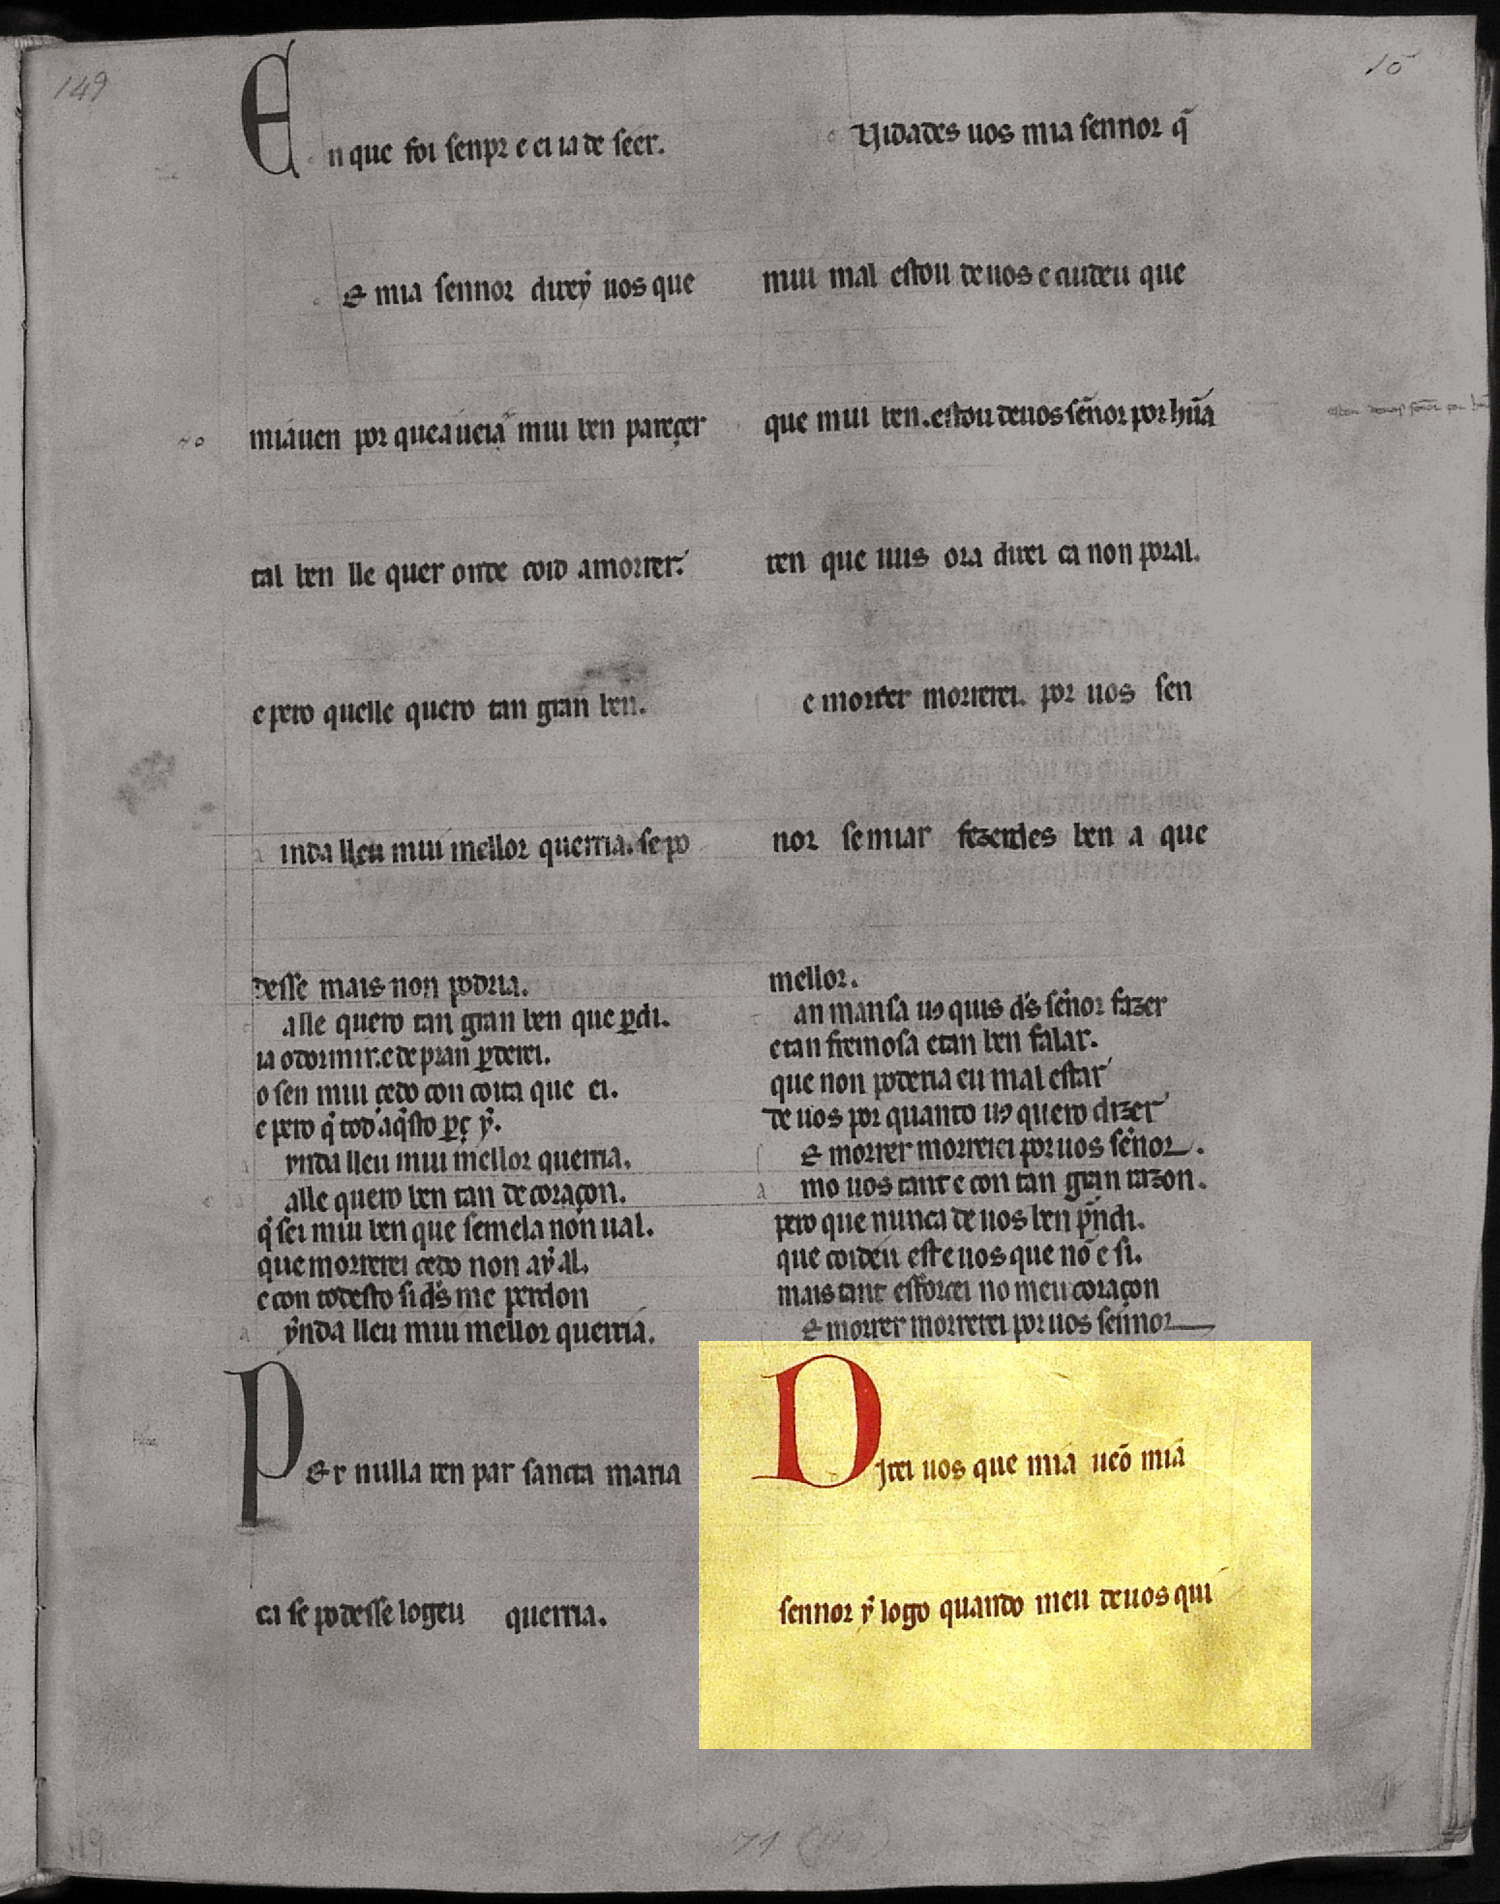 149
15
En que foi senpr e ei ia de seer.
E mia sennor direẏ uos que
miáuen por que á ueia mui ben pareçer
tal ben lle quer onde coid a morrer.
e pero quelle quero tan gran ben.
inda lleu mui mellor querria. se po
desse mais non podria.
alle quero tan gran ben que ꝑdi.
ia o dormir. e de pran ꝑderei.
o sen mui çedo con coita que ei.
e pero q̄ tod aq̄sto ꝑç ẏ.
ynda lleu mui mellor querria.
alle quero ben tan de coraçon.
q̄ sei mui ben que semela non ual.
que morrerei cedo non aẏ al.
e con todesto si d̄s me perdon
ẏnda lleu mui mellor querria.
PEr nulla ren par sancta maria
ca se podesse logeu querria.
uidades uos mia sennor q̄
mui mal estou de uos e cuideu que
que mui ben. estou de uos sēnor por hūa
ren que uus ora direi ca non por al.
e morrer morrerei. por uos sen
nor se miar fezerdes ben a que
mellor.
an mansa uꝯ quis d̄s sēnor fazer
e tan fremosa e tan ben falar.
que non poderia eu mal estar
de uos por quanto uꝯ quero dizer
E morrer morrerei por uos sēnor.
mo uos tant e con tan gran razon.
pero que nunca de uos ben p̄ndi.
que coideu est e uos que nō e si.
mais tant esforcei no meu coraçon
E morrer morrerei por uos sennor
DIrei uos que mia ueō mia
sennor ẏ logo quando meu de uos qui